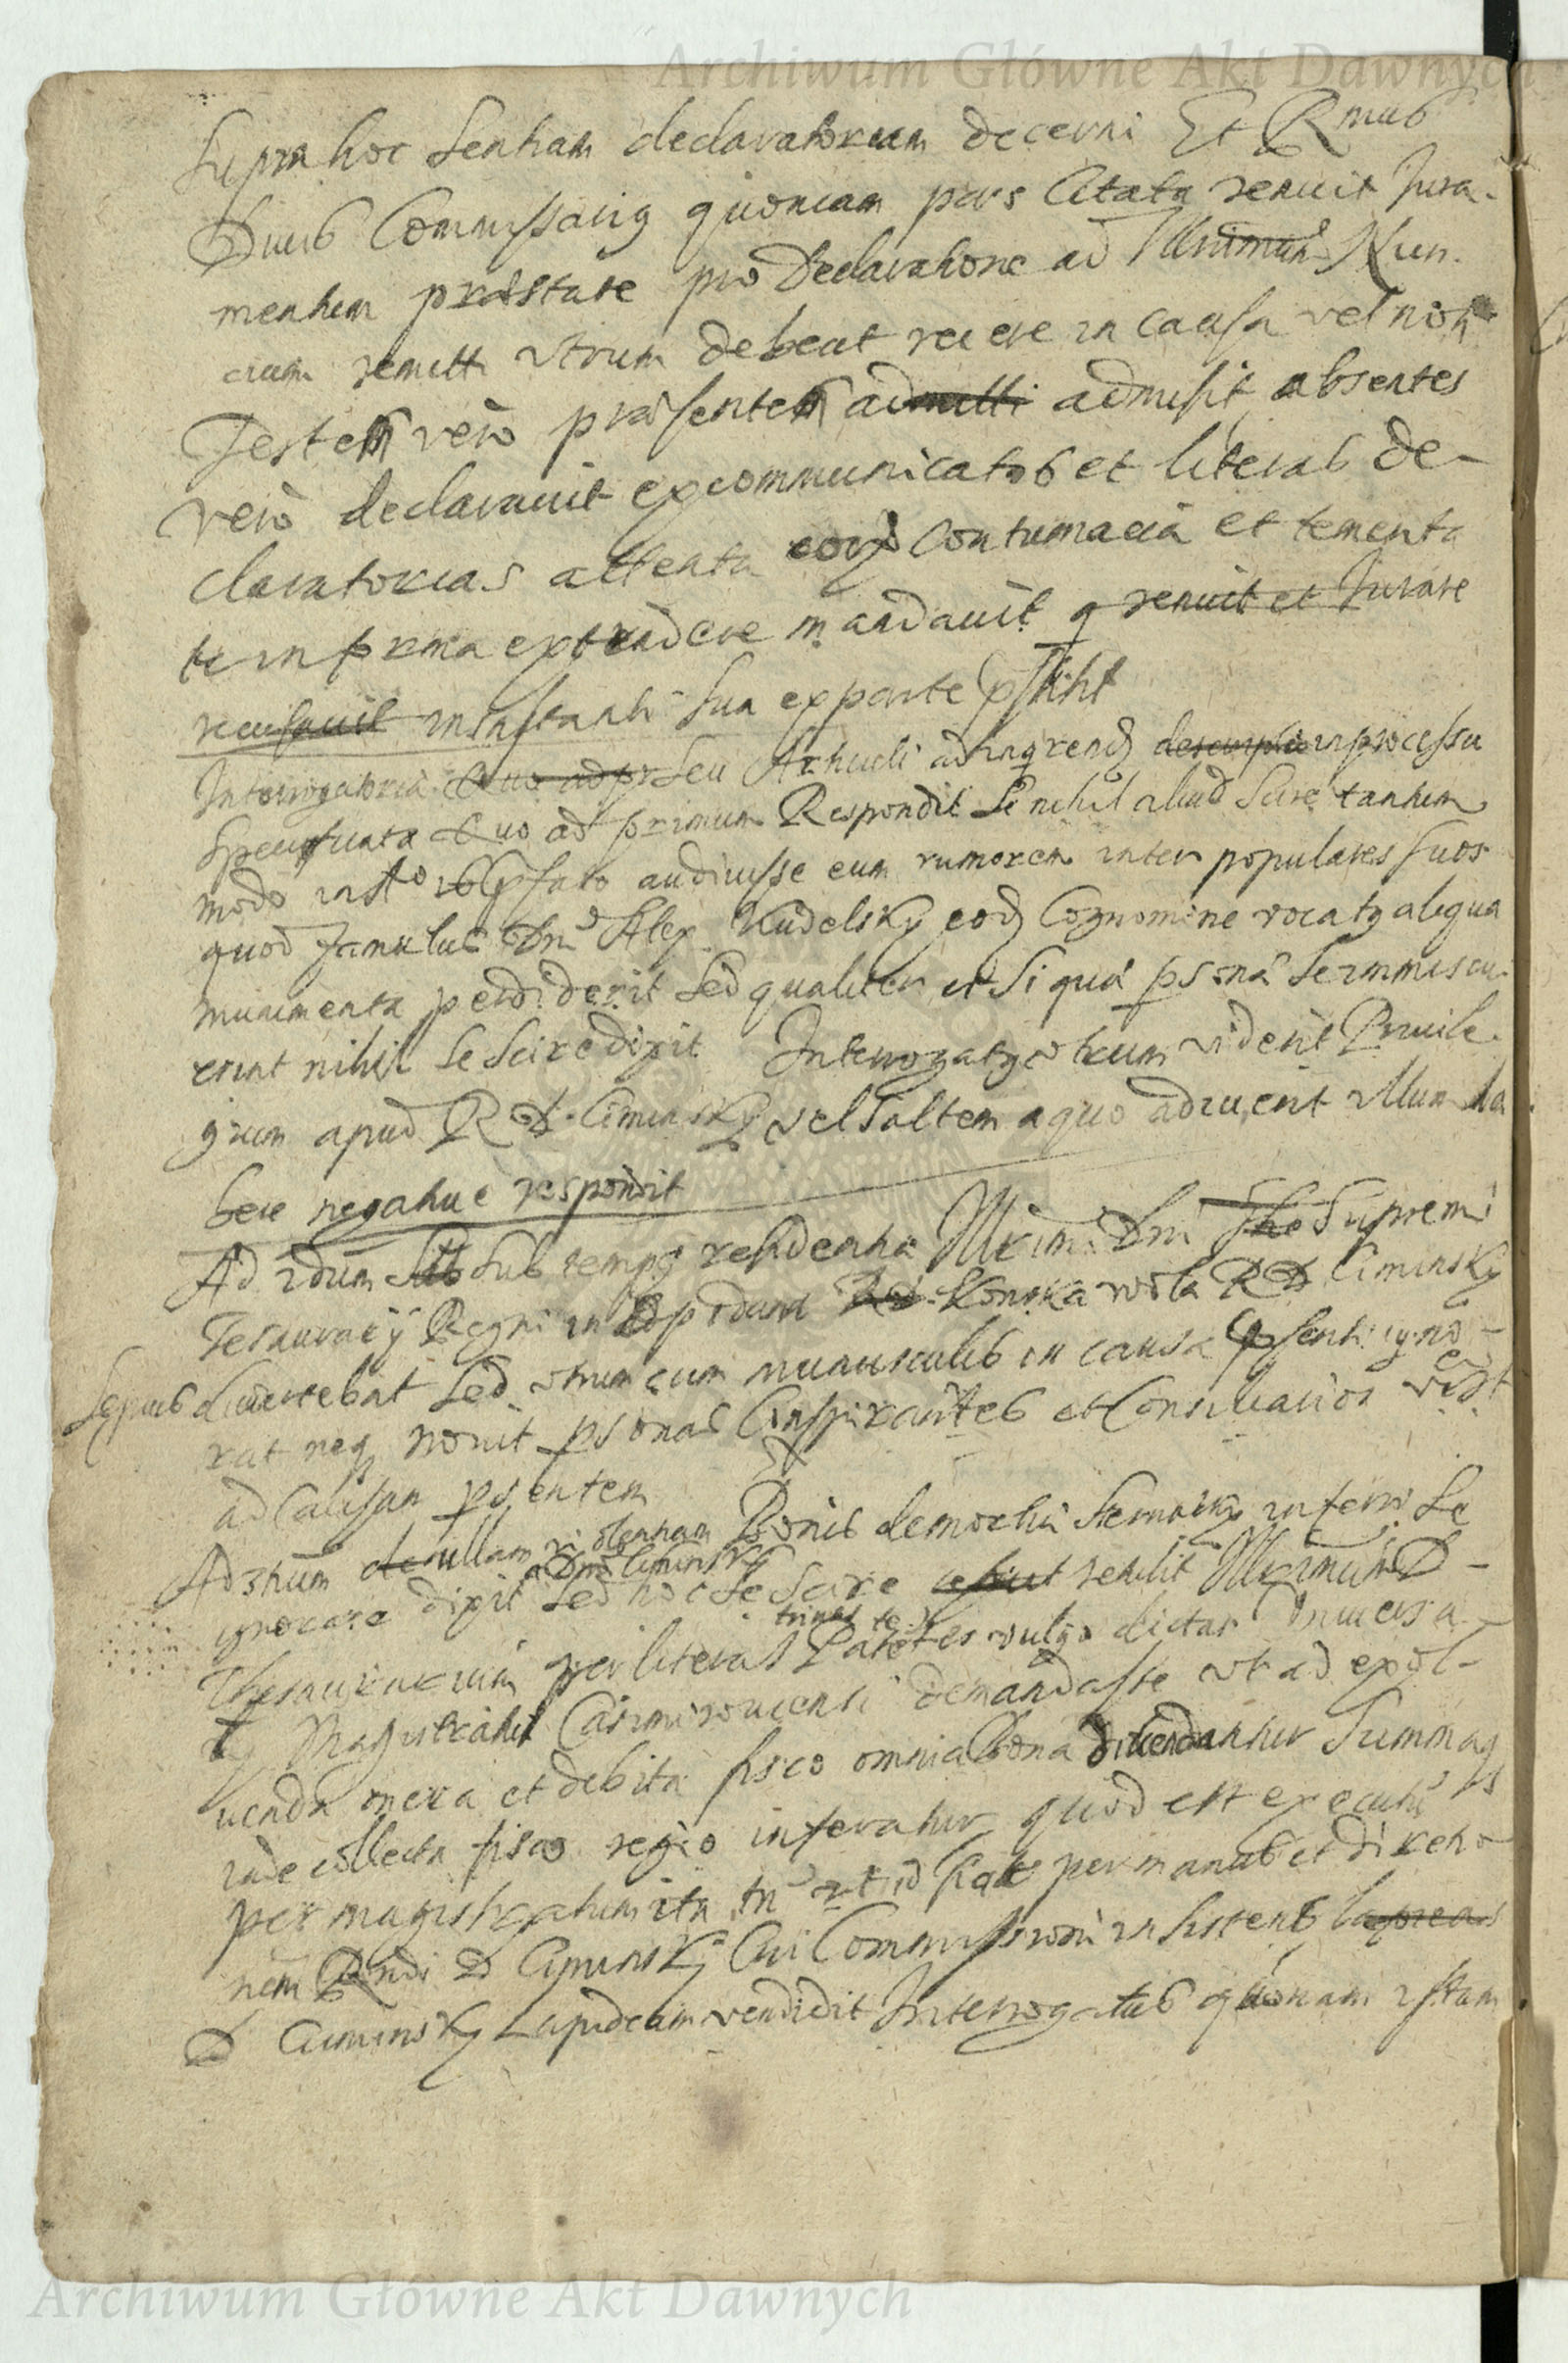 Archiwum Główne Akt Dawnych
supra hoc sentiam declaratoriam decerni Et Rmus
Dnus Commissariq quoniam pars Citata renuit Jura-
mentum præstare pro declaratione ad Illrimum Nun-
cium remitti utrum debeat
 in causa vel non
Testem verò præsentem admitti admisit absentes
verò declaravit excommunicatos et literas de-
claratorias attenta eorq Contumacia et
in forma extendere mandavit q renuit et Jurare
recusavit in instanti sua ex parte
Interrogatoria Quo ad pr seu Articuli ad inqrend descripti in processu
Quo ad primum Respondit Se nihil aliud Scire tantum
modo audivisse eum rumorem inter populares suos
quod famulus Dni Alex Kudelsky eod Cognomine vocatq aliqua
munimenta perdiderit Sed qualiter et Si qua psona Se immiscu-
erint nihil se Scire dixit Interrogatq utrum viderit Privile-
gium apud R D Ciminsky vel Saltem a quo adiverit illum ha
bere negative respondit
Ad 2dum Sub Sub tempq residentiæ Illrimi Dni The Supremi
Tesaurarij Regni in Oppidum Konska vola R D Ciminsky
Sepius divertebat Sed utrum cum munusculis in causa psenti igno-
rat neq novit psonas Conspirantes et Consiliarios
ad Causam psentem
Ad 3tium de ullam violentiam Bonis demortui inferri Se
a Dno Ciminsky
ignorare dixit Sed hoc Se Scire retulit Illrimum D-
trinas
Thesaurarium per literas Patetes vulgo dictas Universa-
ły Magistratui Casimiroviensi demandasse ut ad exol-
venda onera et debita fisco omnia Bona divendantur Summaq
inde collecta fisco regio inferatur quod est executu
per magistratum ita tn ut id fiat per manus et directio-
nem Rndi D Ciminsky Cui Commissioni insistens
D Ciminsky Lapideam vendidit Interrogatus quonam istam
Archiwum Główne Akt Dawnych